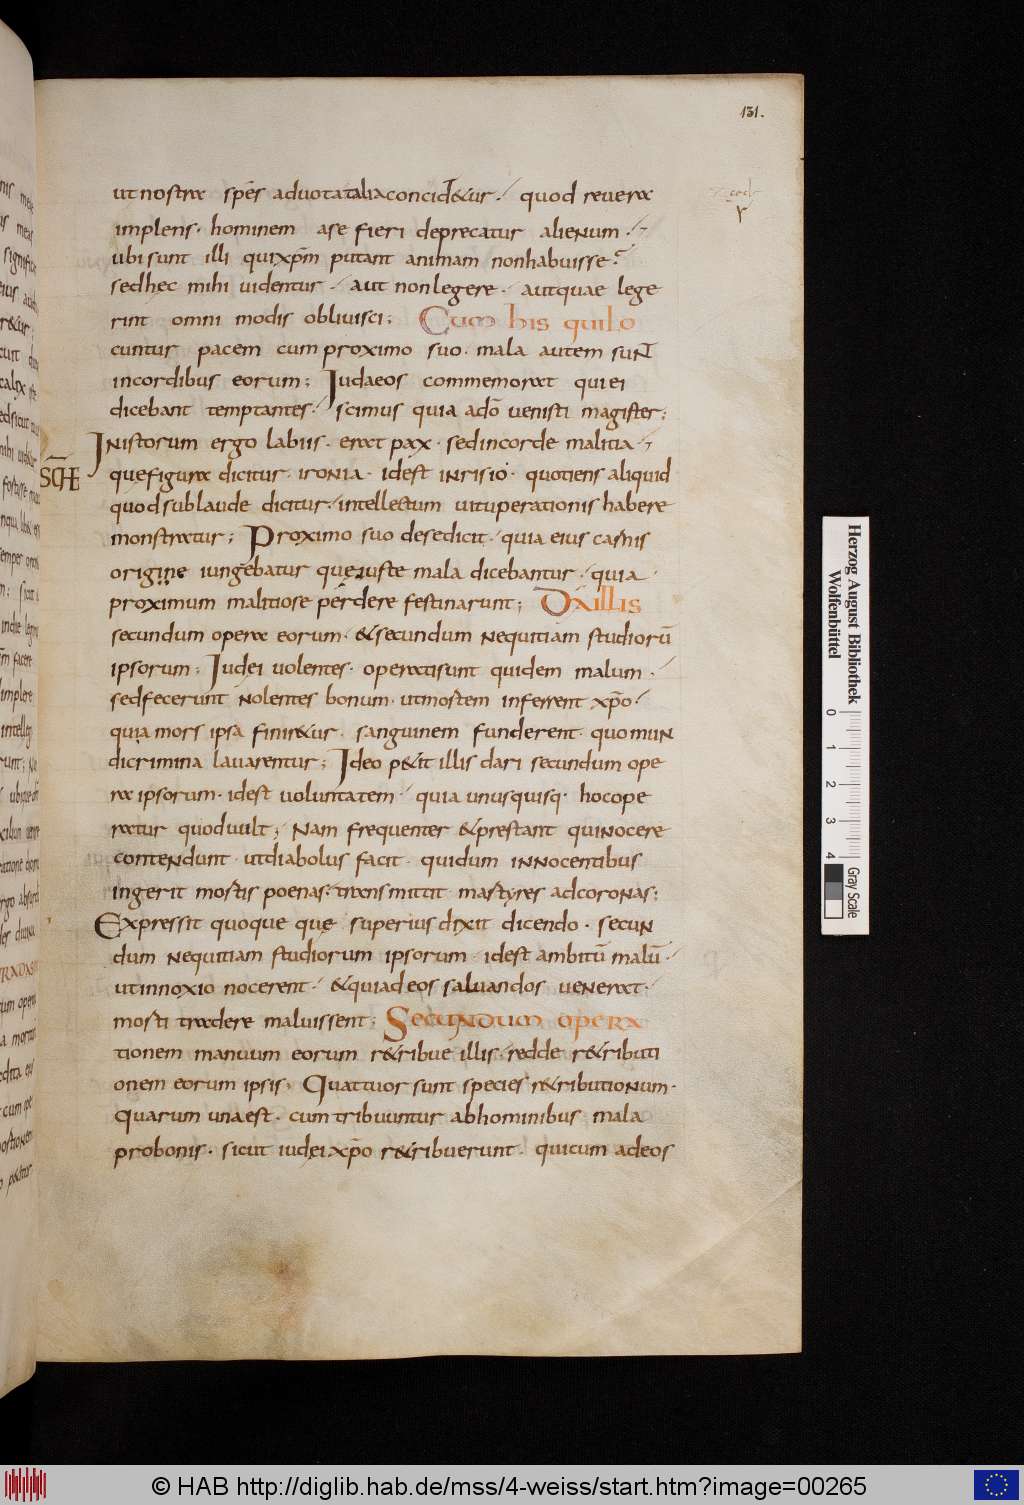 131.
ut nostrae spēs ad vota talia concid&ur. quod revera
implens. hominem a se fieri deprecatur alienum.
ubi sunt illi qui xp̄m putant animam non habuisse?
sed hęc mihi videntur. aut non legere. aut quae lege
rint omni modis oblivisci; Cum his qui lo
cuntur pacem cum proximo suo. mala autem sunt
in cordibus eorum; Iudaeos commemorat qui ei
dicebant temptantes. scimus quia a dō venisti magister;
In istorum ergo labiis. erat pax. sed in corde malitia.
SCHE
quę figura dicitur. ironia. id est inrisio. quotiens aliquid
quod sub laude dicitur. intellectum vituperationis habere
monstratur; Proximo suo de se dicit. quia eius carnis
origine iungebatur quę iuste mala dicebantur. quia
proximum malitiose perdere festinarunt; Da illis
secundum opera eorum. & secundum nequitiam studiorū
ipsorum; Iudęi volentes. operati sunt quidem malum.
sed fecerunt nolentes bonum. ut mortem inferrent xp̄o.
quia mors ipsa finir&ur. sanguinem funderent. quo mun
di crimina lavarentur; Ideo p&it illis dari secundum ope
ra ipsorum. id est voluntatem. quia unusquisq. hoc ope
ratur quod vult; Nam frequenter & prestant qui nocere
contendunt. ut diabolus facit. qui dum innocentibus
ingerit mortis poenas. transmittit martyres ad coronas;
Expressit quoque quę superius dixit dicendo. secun
dum nequitiam studiorum ipsorum. id est ambitū malū.
ut innoxio nocerent. & quia d eos salvandos venerat.
morti tradere maluissent; Secundum opera
tionem manuum eorum r&ribue illis. redde r&ributi
onem eorum ipsis; Quattuor sunt species r&ributionum.
Quarum una est. cum tribuuntur ab hominibus mala
pro bonis. sicut iudęi xp̄o r&ribuerunt. qui cum ad eos
Herzog August Bibliothek
Wolfenbüttel
0 1 2 3 4
Gray Scale
© HAB http://diglib.hab.de/mss/4-weiss/start.htm?image=00265